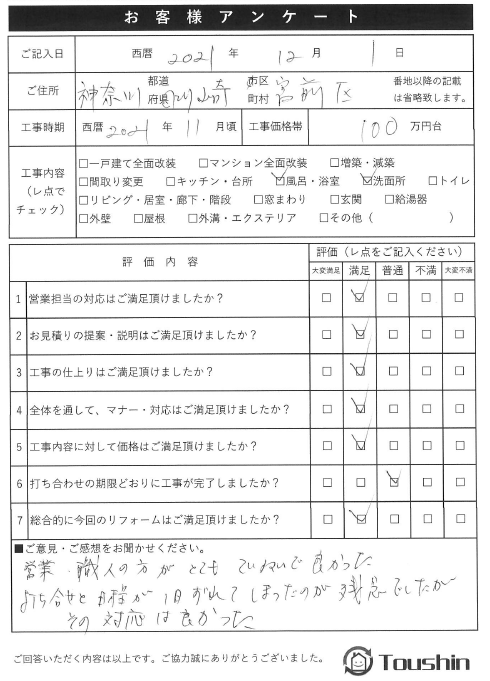 お客様アンケート
ご記入日 西暦 2021 年 12 月 1 日
ご住所 神奈川 都道府県 川崎 市区町村 宮前区 番地以降の記載は省略致します。
工事時期 西暦 2021 年 11 月頃 工事価格帯 100 万円台
工事内容（レ点でチェック）
□一戸建て全面改装 □マンション全面改装 □増築・減築
□間取り変更 □キッチン・台所 ☑風呂・浴室 ☑洗面所 □トイレ
□リビング・居室・廊下・階段 □窓まわり □玄関 □給湯器
□外壁 □屋根 □外溝・エクステリア □その他（ ）
評価内容 評価（レ点をご記入ください）
大変満足 満足 普通 不満 大変不満
1 営業担当の対応はご満足頂けましたか？ □ ☑ □ □ □
2 お見積りの提案・説明はご満足頂けましたか？ □ ☑ □ □ □
3 工事の仕上りはご満足頂けましたか？ □ ☑ □ □ □
4 全体を通して、マナー・対応はご満足頂けましたか？ □ ☑ □ □ □
5 工事内容に対して価格はご満足頂けましたか？ □ ☑ □ □ □
6 打ち合わせの期限どおりに工事が完了しましたか？ □ □ ☑ □ □
7 総合的に今回のリフォームはご満足頂けましたか？ □ ☑ □ □ □
■ご意見・ご感想をお聞かせください。
営業・職人の方がとてもていねいで良かった
打ち合せと日程が1日ずれてしまったのが残念でしたが
その対応は良かった
ご回答いただく内容は以上です。ご協力誠にありがとうございました。
Toushin